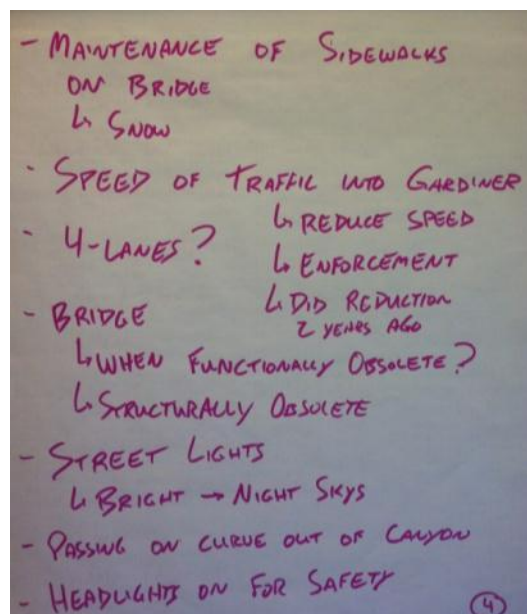 - MAINTENANCE OF SIDEWALKS
ON BRIDGE
↳ SNOW
- SPEED OF TRAFFIC INTO GARDINER
↳ REDUCE SPEED
- 4-LANES?
↳ ENFORCEMENT
↳ DID REDUCTION
2 YEARS AGO
- BRIDGE
↳ WHEN FUNCTIONALLY OBSOLETE?
↳ STRUCTURALLY OBSOLETE
- STREET LIGHTS
↳ BRIGHT → NIGHT SKYS
- PASSING ON CURVE OUT OF CANYON
- HEADLIGHTS ON FOR SAFETY
4